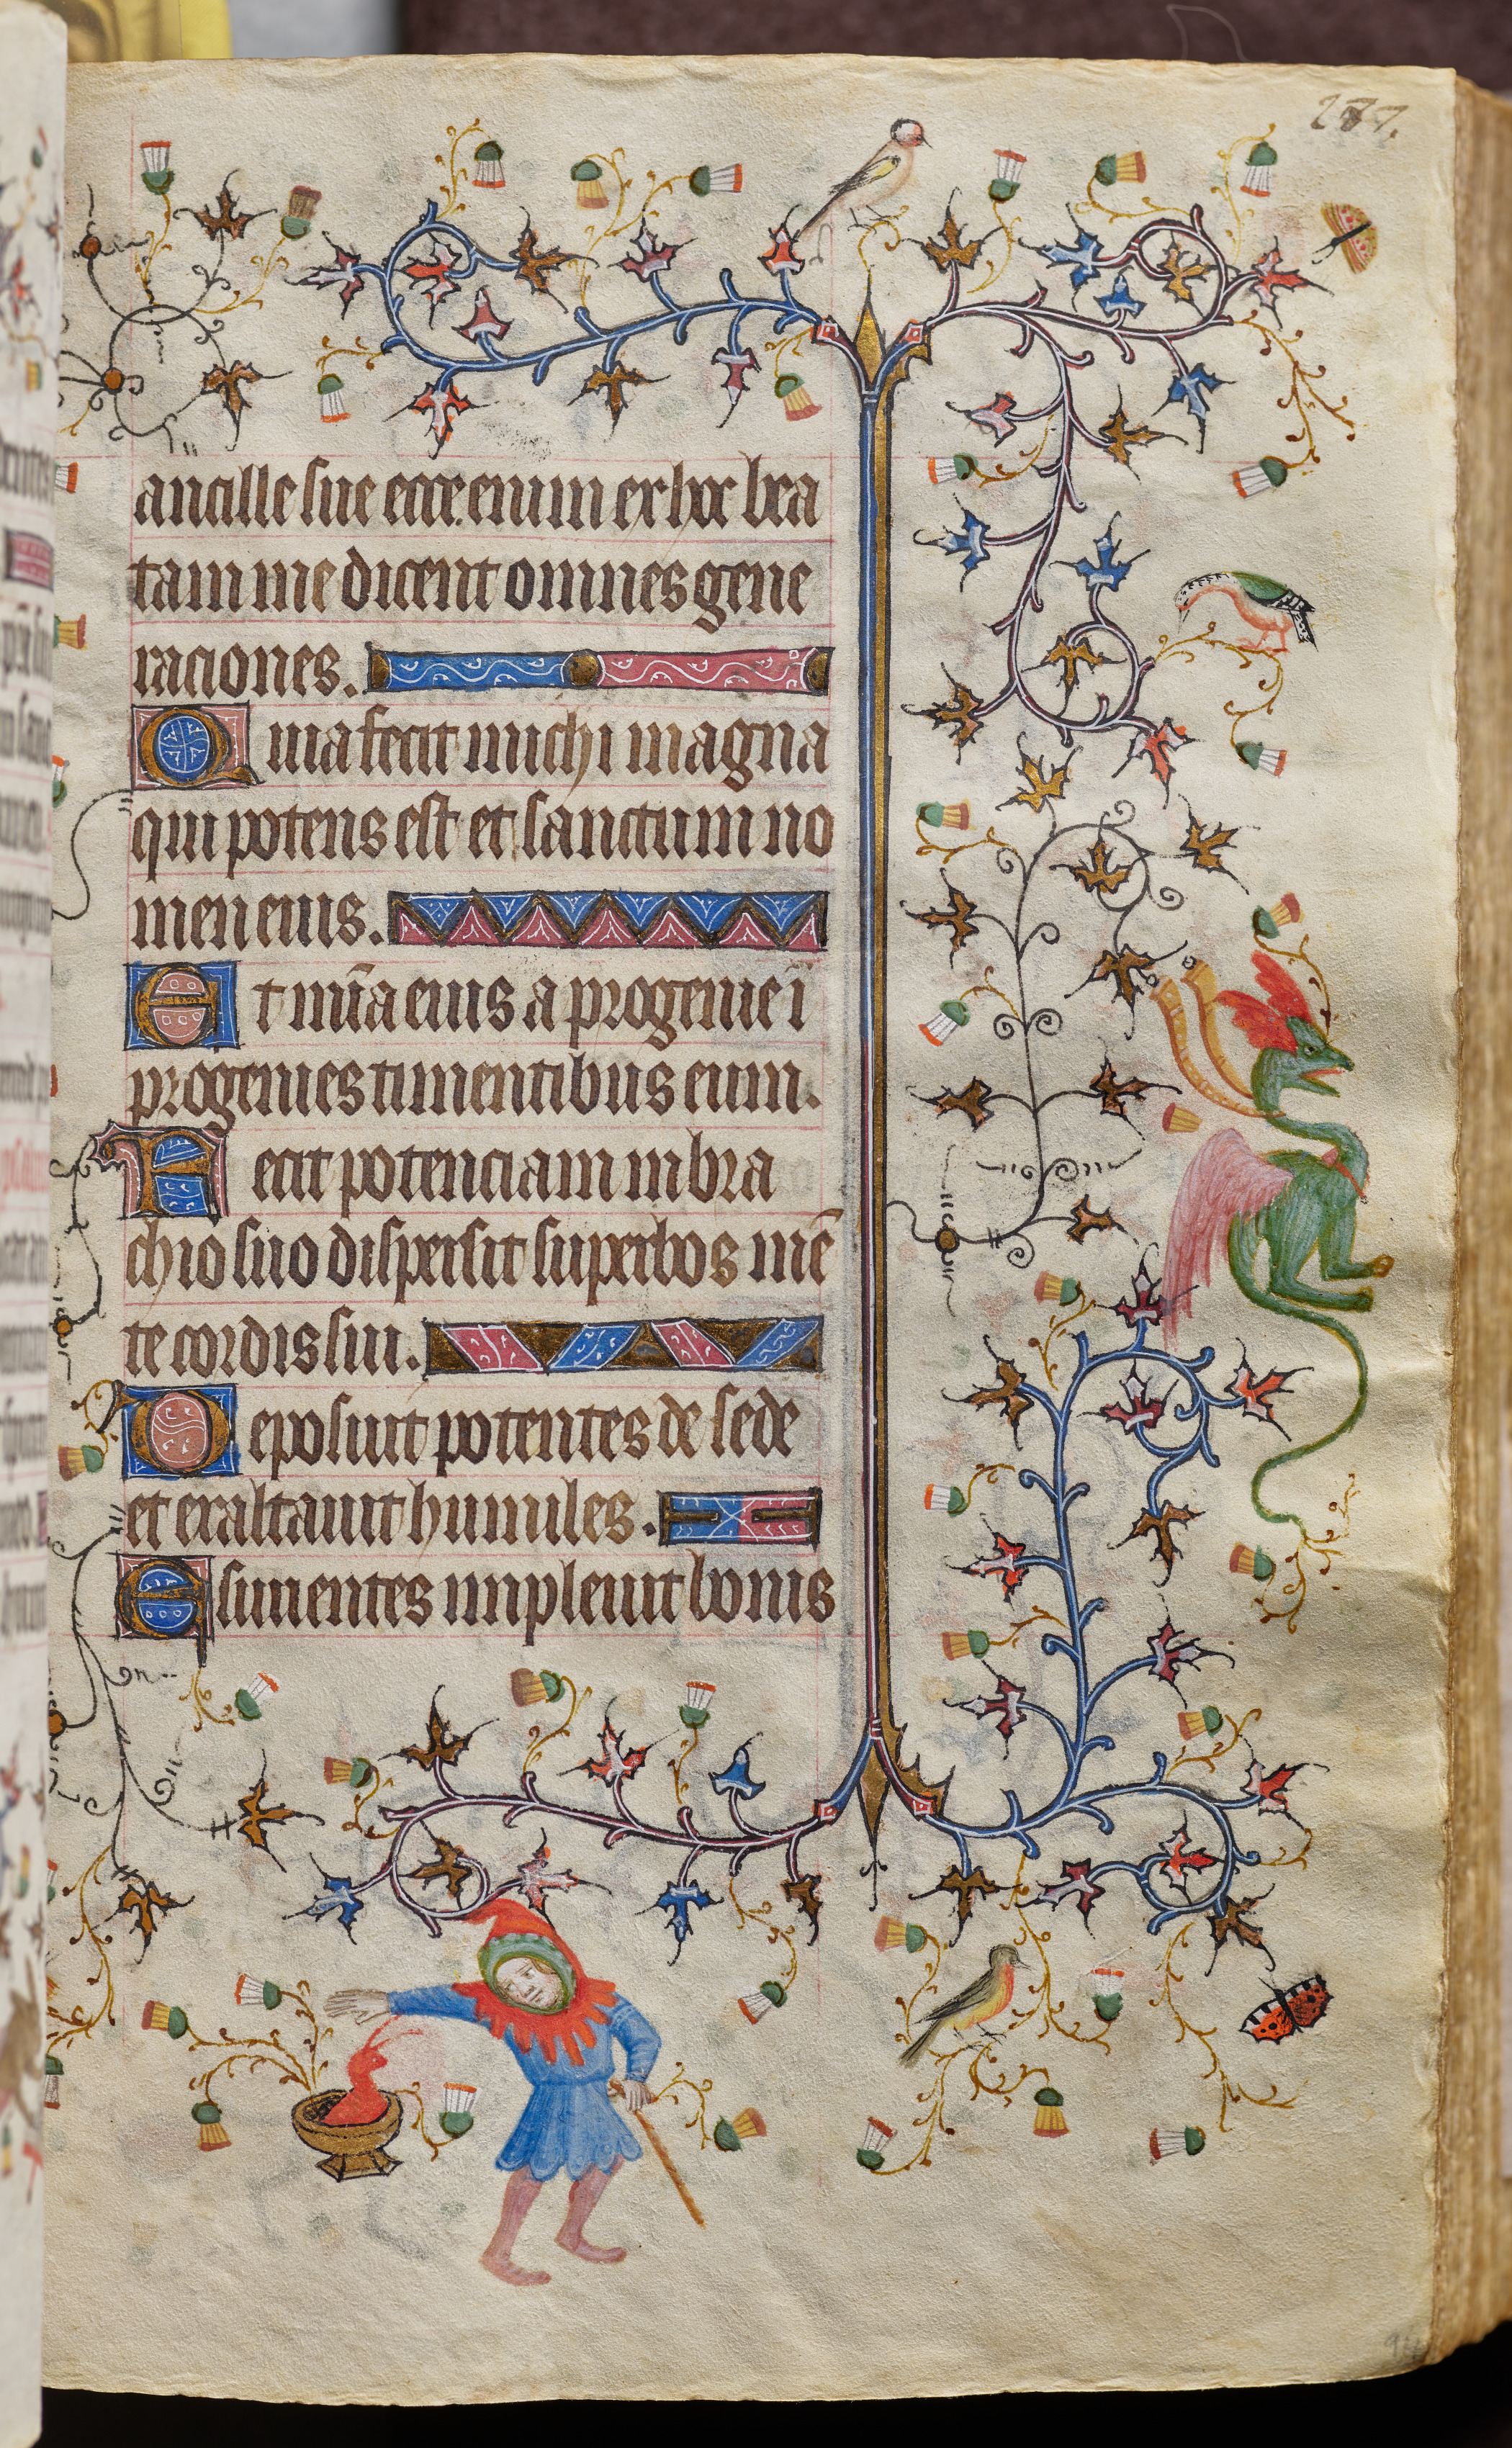 277.
ancille sue ecce enim ex hoc bea
tam me dicent omnes gene
raciones.
Quia fecit michi magna
qui potens est et sanctum no
men eius.
Et mīa eius a progenie ī
progenies timentibus eum.
Fecit potenciam in bra
chio suo dispersit superbos mē
te cordis sui.
Deposuit potentes de sede
et exaltauit humiles.
Esurientes impleuit bonis